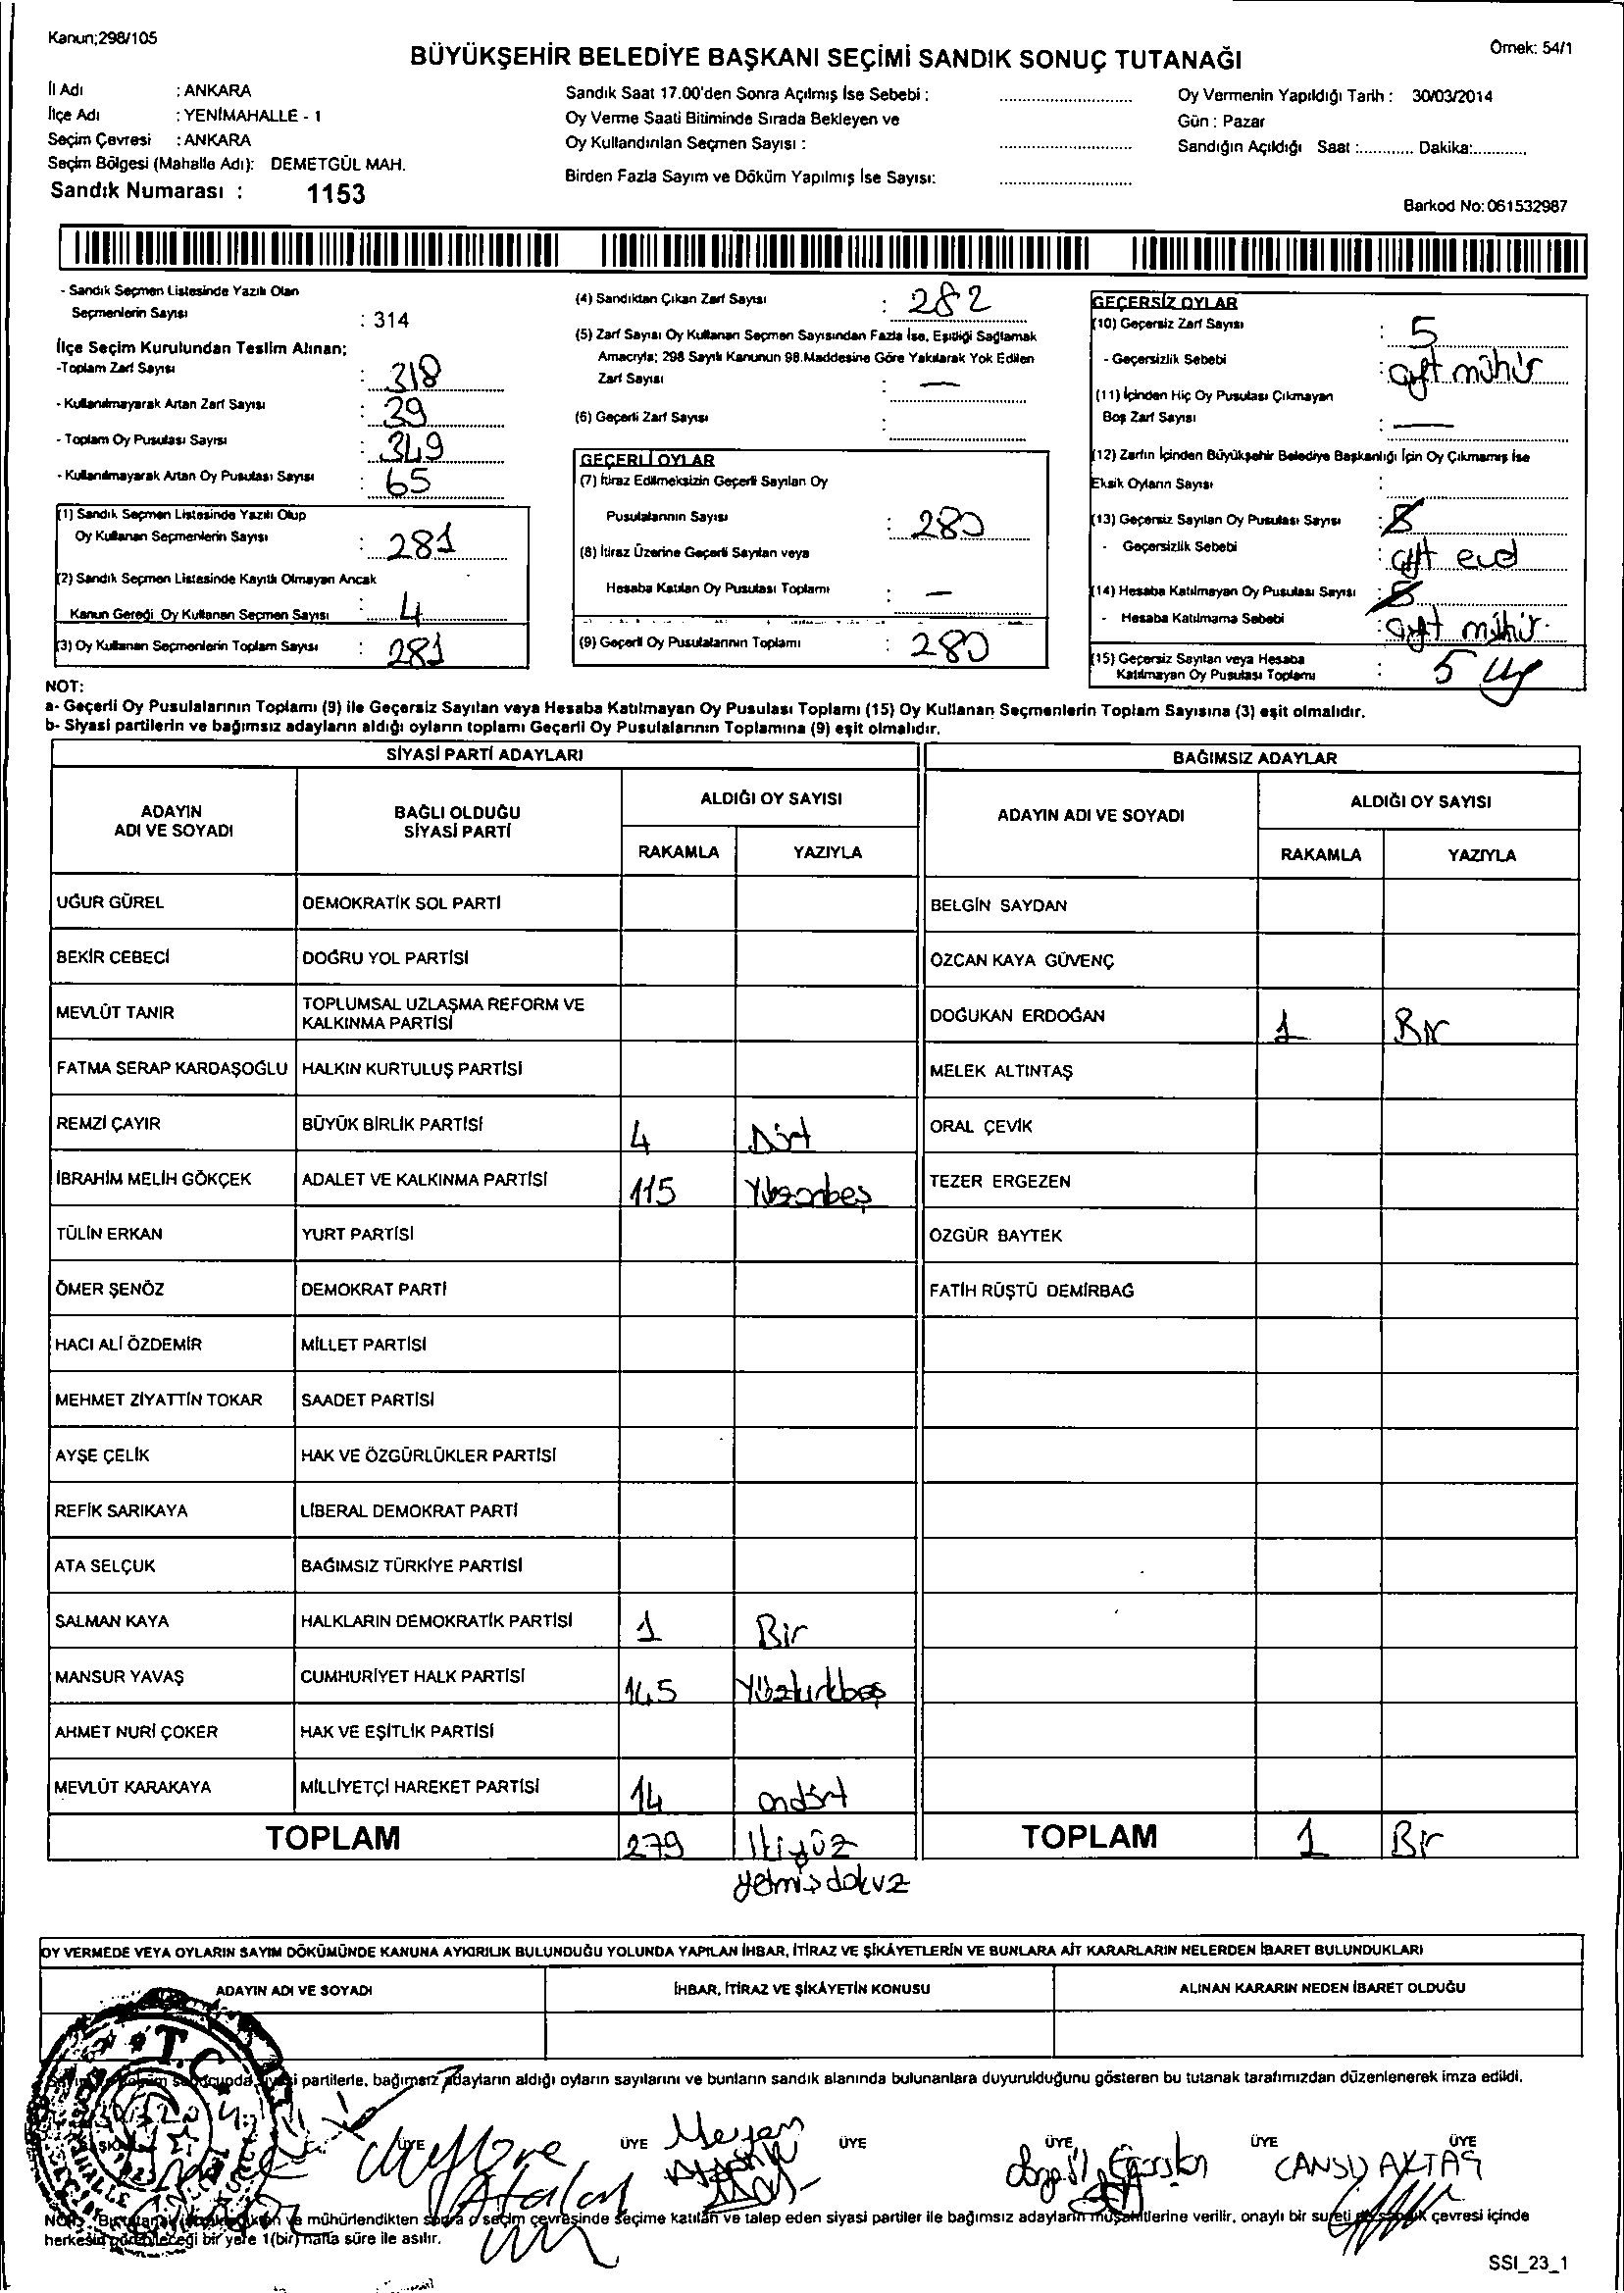 Kanun;298/105
BÜYÜKŞEHİR BELEDİYE BAŞKANI SEÇİMİ SANDIK SONUÇ TUTANAĞI
Örnek: 54/1
İl Adı : ANKARA
İlçe Adı : YENİMAHALLE - 1
Seçim Çevresi : ANKARA
Seçim Bölgesi (Mahalle Adı): DEMETGÜL MAH.
Sandık Numarası : 1153
Sandık Saat 17.00'den Sonra Açılmış İse Sebebi :
Oy Verme Saati Bitiminde Sırada Bekleyen ve
Oy Kullandırılan Seçmen Sayısı :
Birden Fazla Sayım ve Döküm Yapılmış İse Sayısı:
Oy Vermenin Yapıldığı Tarih : 30/03/2014
Gün : Pazar
Sandığın Açıldığı Saat :............ Dakika:............
Barkod No: 061532987
- Sandık Seçmen Listesinde Yazılı Olan
Seçmenlerin Sayısı : 314
İlçe Seçim Kurulundan Teslim Alınan;
-Toplam Zarf Sayısı : 318
- Kullanılmayarak Artan Zarf Sayısı : 39
- Toplam Oy Pusulası Sayısı : 349
- Kullanılmayarak Artan Oy Pusulası Sayısı : 65
(1) Sandık Seçmen Listesinde Yazılı Olup
Oy Kullanan Seçmenlerin Sayısı : 281
(2) Sandık Seçmen Listesinde Kayıtlı Olmayan Ancak
Kanun Gereği Oy Kullanan Seçmen Sayısı : 4
(3) Oy Kullanan Seçmenlerin Toplam Sayısı : 281
(4) Sandıktan Çıkan Zarf Sayısı : 282
(5) Zarf Sayısı Oy Kullanan Seçmen Sayısından Fazla İse, Eşitliği Sağlamak
Amacıyla; 298 Sayılı Kanunun 98.Maddesine Göre Yakılarak Yok Edilen
Zarf Sayısı : —
(6) Geçerli Zarf Sayısı :
GEÇERLİ OYLAR
(7) İtiraz Edilmeksizin Geçerli Sayılan Oy
Pusulalarının Sayısı : 280
(8) İtiraz Üzerine Geçerli Sayılan veya
Hesaba Katılan Oy Pusulası Toplamı : —
(9) Geçerli Oy Pusulalarının Toplamı : 280
GEÇERSİZ OYLAR
(10) Geçersiz Zarf Sayısı : 5
- Geçersizlik Sebebi : çift mühür
(11) İçinden Hiç Oy Pusulası Çıkmayan
Boş Zarf Sayısı : —
(12) Zarfın İçinden Büyükşehir Belediye Başkanlığı İçin Oy Çıkmamış İse
Eksik Oyların Sayısı :
(13) Geçersiz Sayılan Oy Pusulası Sayısı :
- Geçersizlik Sebebi : çift
(14) Hesaba Katılmayan Oy Pusulası Sayısı :
- Hesaba Katılmama Sebebi : çift mühür
(15) Geçersiz Sayılan veya Hesaba
Katılmayan Oy Pusulası Toplamı : 5
NOT:
a- Geçerli Oy Pusulalarının Toplamı (9) ile Geçersiz Sayılan veya Hesaba Katılmayan Oy Pusulası Toplamı (15) Oy Kullanan Seçmenlerin Toplam Sayısına (3) eşit olmalıdır.
b- Siyasi partilerin ve bağımsız adayların aldığı oyların toplamı Geçerli Oy Pusulalarının Toplamına (9) eşit olmalıdır.
SİYASİ PARTİ ADAYLARI
BAĞIMSIZ ADAYLAR
ADAYIN ADI VE SOYADI
BAĞLI OLDUĞU SİYASİ PARTİ
ALDIĞI OY SAYISI
RAKAMLA YAZIYLA
ADAYIN ADI VE SOYADI
ALDIĞI OY SAYISI
RAKAMLA YAZIYLA
UĞUR GÜREL DEMOKRATİK SOL PARTİ BELGİN SAYDAN
BEKİR CEBECİ DOĞRU YOL PARTİSİ ÖZCAN KAYA GÜVENÇ
MEVLÜT TANIR TOPLUMSAL UZLAŞMA REFORM VE KALKINMA PARTİSİ DOĞUKAN ERDOĞAN 1 Bir
FATMA SERAP KARDAŞOĞLU HALKIN KURTULUŞ PARTİSİ MELEK ALTINTAŞ
REMZİ ÇAYIR BÜYÜK BİRLİK PARTİSİ 4 Dört ORAL ÇEVİK
İBRAHİM MELİH GÖKÇEK ADALET VE KALKINMA PARTİSİ 115 Yüzonbeş TEZER ERGEZEN
TÜLİN ERKAN YURT PARTİSİ ÖZGÜR BAYTEK
ÖMER ŞENÖZ DEMOKRAT PARTİ FATİH RÜŞTÜ DEMİRBAĞ
HACI ALİ ÖZDEMİR MİLLET PARTİSİ
MEHMET ZİYATTİN TOKAR SAADET PARTİSİ
AYŞE ÇELİK HAK VE ÖZGÜRLÜKLER PARTİSİ
REFİK SARIKAYA LİBERAL DEMOKRAT PARTİ
ATA SELÇUK BAĞIMSIZ TÜRKİYE PARTİSİ
SALMAN KAYA HALKLARIN DEMOKRATİK PARTİSİ 1 Bir
MANSUR YAVAŞ CUMHURİYET HALK PARTİSİ 145 Yüzkırkbeş
AHMET NURİ ÇOKER HAK VE EŞİTLİK PARTİSİ
MEVLÜT KARAKAYA MİLLİYETÇİ HAREKET PARTİSİ 14 ondört
TOPLAM 279 İkiyüz TOPLAM 1 Bir
yetmişdokuz
OY VERMEDE VEYA OYLARIN SAYIM DÖKÜMÜNDE KANUNA AYKIRILIK BULUNDUĞU YOLUNDA YAPILAN İHBAR, İTİRAZ VE ŞİKÂYETLERİN VE BUNLARA AİT KARARLARIN NELERDEN İBARET BULUNDUKLARI
ADAYIN ADI VE SOYADI İHBAR, İTİRAZ VE ŞİKÂYETİN KONUSU ALINAN KARARIN NEDEN İBARET OLDUĞU
T.C.
partilerle, bağımsız adayların aldığı oyların sayılarını ve bunların sandık alanında bulunanlara duyurulduğunu gösteren bu tutanak tarafımızdan düzenlenerek imza edildi.
ÜYE ÜYE ÜYE ÜYE ÜYE ÜYE
Meyem CANSU AKTAŞ
Atalay
NOT: Bu tutanak ve mühürlendikten sonra o seçim çevresinde seçime katılan ve talep eden siyasi partiler ile bağımsız adayların müşahitlerine verilir, onaylı bir sureti de sandık çevresi içinde
herkesin görebileceği bir yere 1(bir) hafta süre ile asılır.
SSI_23_1